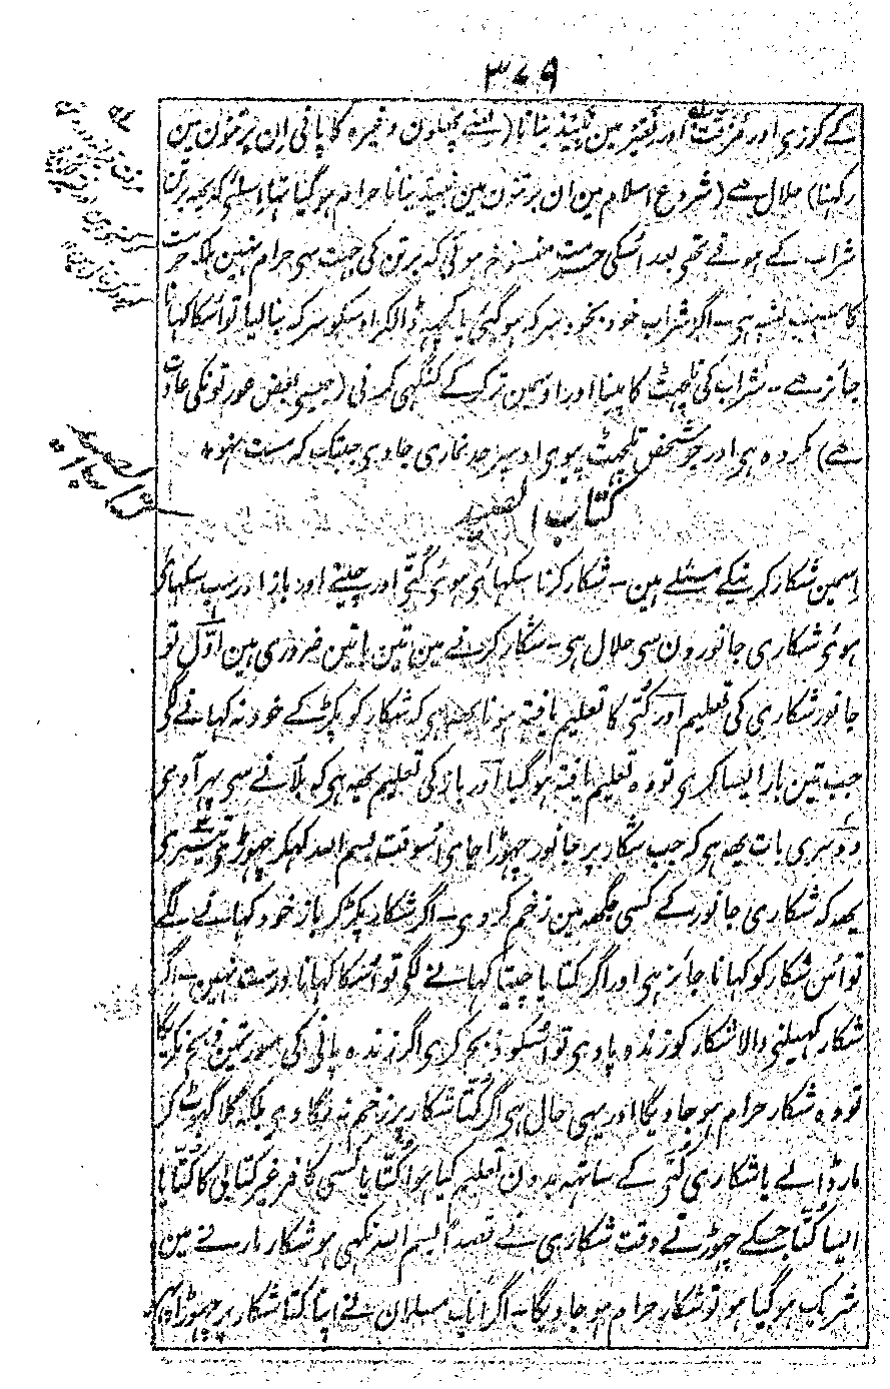 ۳۷۹
کے کوزی اور مزفت اور نقیر مین نبیذ بنانا (یعنے پھلون وغیرہ کا پانی ان برتنون مین
رکہنا) حلال ہے (شروع اسلام مین ان برتنون مین نبیذ بنانا حرام ہوگیا تہا اسلئے کہ یہہ برتن
شراب کے ہوتے تہی بعد اسکی حرمت منسوخ ہوئی کہ برتن کی جہت سی حرام نہین بلکہ حرمت
کا سبب نشہ ہی۔ اگر شراب خود بخود سرکہ ہوگئی یا کچہہ ڈالکر اوسکو سرکہ بنا لیا تو اسکا کہانا
جائز ہے۔ شراب کی تلچہٹ کا پینا اور اوسمین تر کرکے کنگہی کرنی (جیسی بعض عورتونکی عادت
ہے) مکروہ ہی اور جو شخص تلچہٹ پیوی اوسپر حد نماری جاوی جبتک کہ مست نہو
کتاب الصید
اسمین شکار کرنیکے مسئلے ہین۔ شکار کرنا سکہائی ہوئی کُتّی اور چیتے اور باز اور سب سکہائی
ہوئی شکاری جانورون سی حلال ہی۔ شکار کرنے مین تین باتین ضروری ہین اوّل تو
جانور شکاری کی تعلیم اور کُتّی کا تعلیم یافتہ ہونا یہہ ہی کہ شکار کو پکڑ کے خود نہ کہانے لگی
جب تین بار ایسا کری تو وہ تعلیم یافتہ ہوگیا اور باز کی تعلیم یہہ ہی کہ بلانے سی پہر آوی
دوسری بات یہہ ہی کہ جب شکار پر جانور چہوڑا جاوی اسوقت بسم اللہ کہکر چہوڑی تیسری
یہہ کہ شکاری جانور کے کسی جگہہ مین زخم کر دی۔ اگر شکار پکڑ کر باز خود کہانے لگے
تو اس شکار کو کہانا جائز ہی اور اگر کتا یا چیتا کہانے لگی تو اسکا کہانا درست نہین۔ اگر
شکار کہیلنی والا شکار کو زندہ پاوی تو اسکو ذبح کری اگر زندہ پانی کی صورتمین ذبح نکریگا
تو وہ شکار حرام ہو جاویگا اور یہی حال ہی اگر کُتّا شکار پر زخم نہ لگاوی بلکہ گلا گہونٹ کر
مار ڈالے یا شکاری کُتّی کے ساتہہ بدون تعلیم کیا ہوا کُتّا یا کسی کافر غیر کتابی کا کُتّا یا
ایسا کُتّا جسکے چہوڑتے وقت شکاری نے قصداً بسم اللہ نکہی ہو شکار مارنے مین
شریک ہوگیا ہو تو شکار حرام ہو جاویگا۔ اگر ایک مسلمان نے اپنا کتا شکار پر چہوڑا پہر